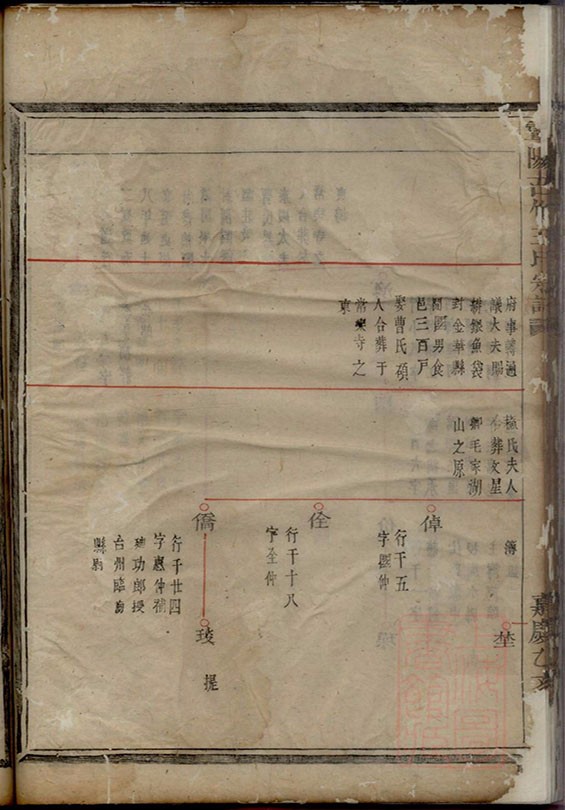 府事轉通
議大夫賜
緋銀魚袋
封金華縣
開國男食
邑三百戶
娶曹氏碩
人合葬于
常樂寺之
東
梅氏夫人
合葬文星
鄉毛家湖
山之原
簿
埜
倬
行千五
字國仲
佺
行千十八
字全仲
僑
行千廿四
字惠仲補
迪功郎授
台州臨海
縣尉
琰
提
嘉慶乙亥